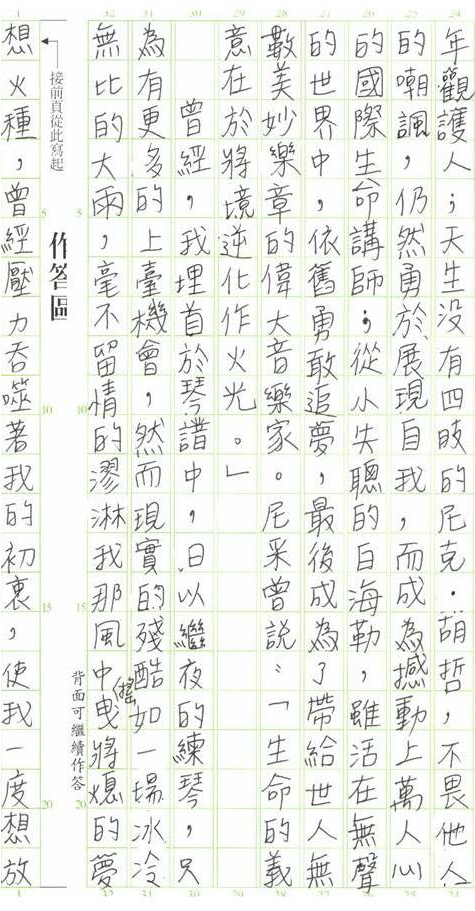 32 31 30 29 28 27 26 25 24
年觀護人;天生沒有四肢的尼克.胡哲,不畏他人
的嘲諷,仍然勇於展現自我,而成為撼動上萬人心
的國際生命講師;從小失聰的白海勒,雖活在無聲
的世界中,依舊勇敢追夢,最後成為了帶給世人無
數美妙樂章的偉大音樂家。尼采曾說:「生命的義
意在於將境逆化作火光。」
曾經,我埋首於琴譜中,日以繼夜的練琴,只
為有更多的上臺機會,然而現實的殘酷如一場冰冷
無比的大雨,毫不留情的漻淋我那風中搖曳將熄的夢
5 10 15 20
背面可繼續作答
作答區
接前頁從此寫起
5 10 15 20
1
想火種,曾經壓力吞噬著我的初衷,使我一度想放
1
32 31 30 29 28 27 26 25 24